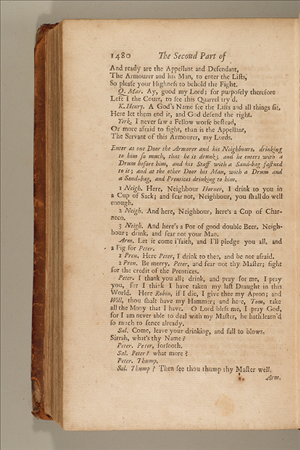 1480 The Second Part of
And ready are the Appellant and Defendant,
The Armourer and his Man, to enter the Lists,
So please your Highness to behold the Fight.
Q. Mar. Ay, good my Lord: for purposely therefore
Left I the Court, to see this Quarrel try'd.
K. Henry. A God's Name see the Lists and all things fit,
Here let them end it, and God defend the right.
York. I never saw a Fellow worse bestead,
Or more afraid to fight, than is the Appellant,
The Servant of this Armourer, my Lords.
Enter at one Door the Armorer and his Neighbours, drinking
to him so much, that he is drunk; and he enters with a
Drum before him, and his Staff with a Sand-bag fastned
to it; and at the other Door his Man, with a Drum and
a Sand-bag, and Prentices drinking to him.
1 Neigh. Here, Neighbour Horner, I drink to you in
a Cup of Sack; and fear not, Neighbour, you shall do well
enough.
2 Neigh. And here, Neighbour, here's a Cup of Char-
neco.
3 Neigh. And here's a Pot of good double Beer, Neigh-
bour; drink, and fear not your Man.
Arm. Let it come i'faith, and I'll pledge you all, and
a Fig for Peter.
1 Pren. Here Peter, I drink to thee, and be not afraid.
2 Pren. Be merry, Peter, and fear not thy Master; fight
for the credit of the Prentices.
Peter. I thank you all; drink, and pray for me, I pray
you, for I think I have taken my last Draught in this
World. Here Robin, if I die, I give thee my Apron; and
Will, thou shalt have my Hammer; and here, Tom, take
all the Mony that I have. O Lord bless me, I pray God,
for I am never able to deal with my Master, he hath learn'd
so much to fence already.
Sal. Come, leave your drinking, and fall to blows.
Sirrah, what's thy Name?
Peter. Peter, forsooth.
Sal. Peter? what more?
Peter. Thump.
Sal. Thump? Then see thou thump thy Master well.
Arm.